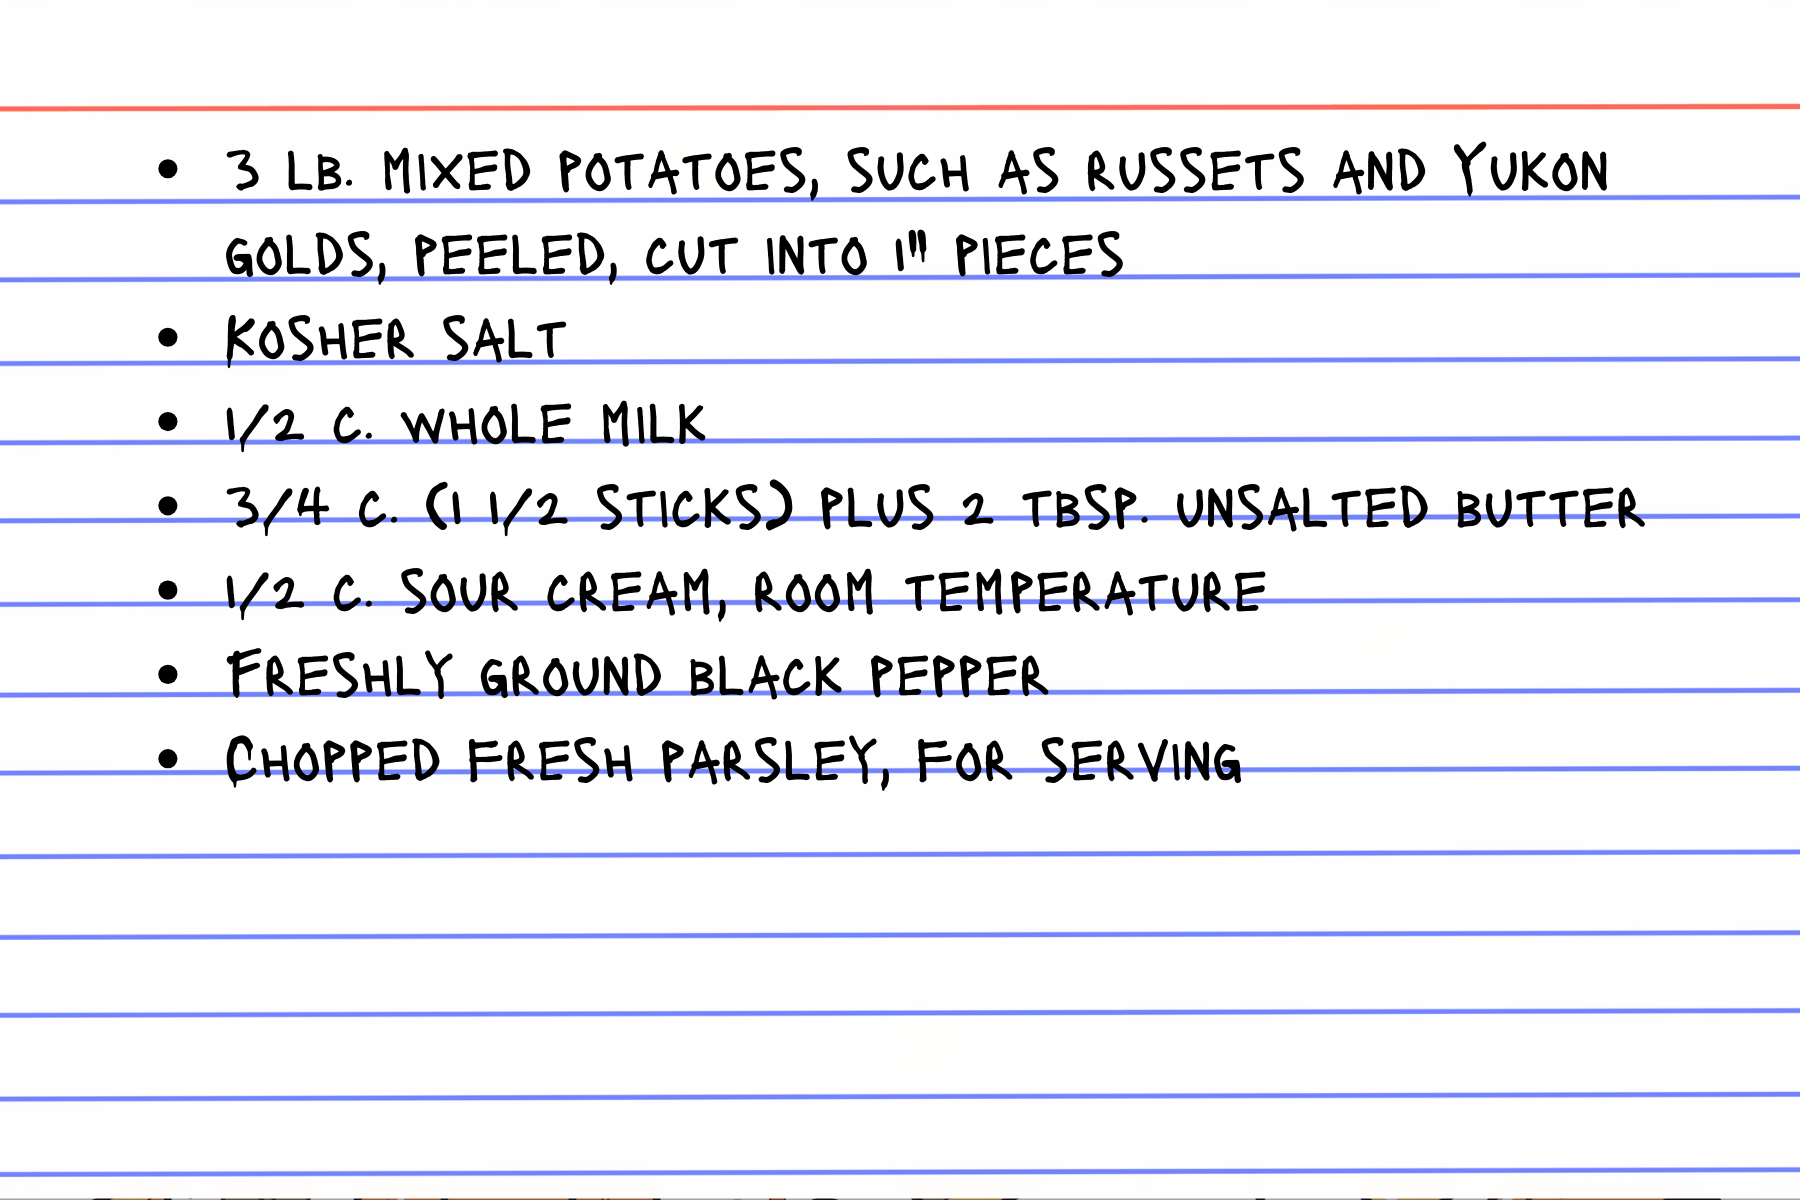 • 3 LB. MIXED POTATOES, SUCH AS RUSSETS AND YUKON
GOLDS, PEELED, CUT INTO 1" PIECES
• KOSHER SALT
• 1/2 C. WHOLE MILK
• 3/4 C. (1 1/2 STICKS) PLUS 2 TBSP. UNSALTED BUTTER
• 1/2 C. SOUR CREAM, ROOM TEMPERATURE
• FRESHLY GROUND BLACK PEPPER
• CHOPPED FRESH PARSLEY, FOR SERVING